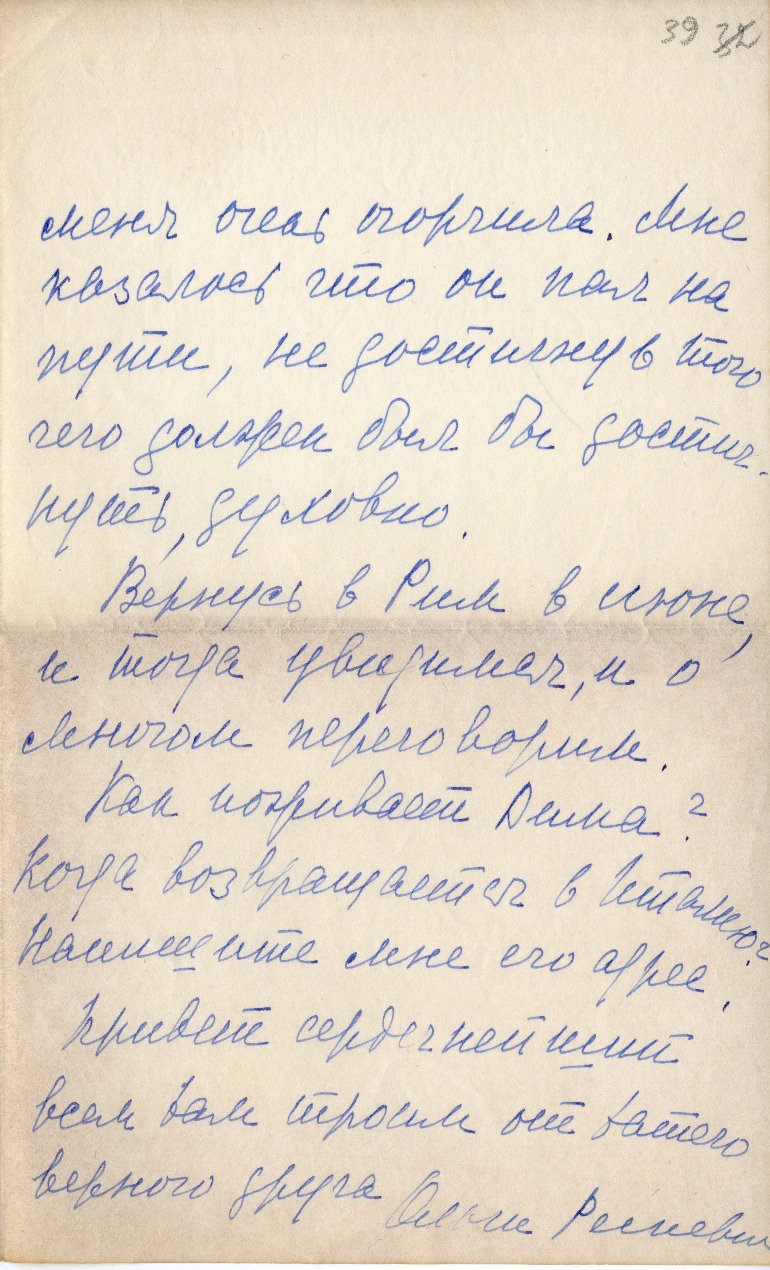 39
меня очень огорчила. Мне
казалось что он пал на
пути, не достигнув того
чего должен был бы достиг-
нуть, духовно.
Вернусь в Рим в июне,
и тогда увидимся, и о
многом переговорим.
Как поживает Дима?
Когда возвращается в Италию?
Напишите мне его адрес.
Привет сердечнейший
всем Вам троим от Вашего
верного друга Ольги Ресневич